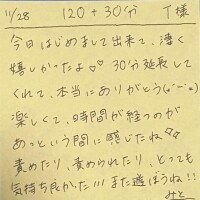 11/28 120+30分 T様
今日はじめまして出来て、凄く
嬉しかったよ♡♡ 30分延長して
くれて、本当にありがとう(о´∀`о)
楽しくて、時間が経つのが
あっという間に感じたね♡♡
責めたり、責められたり、とっても
気持ち良かた!!! また遊ぼうね!!
みと